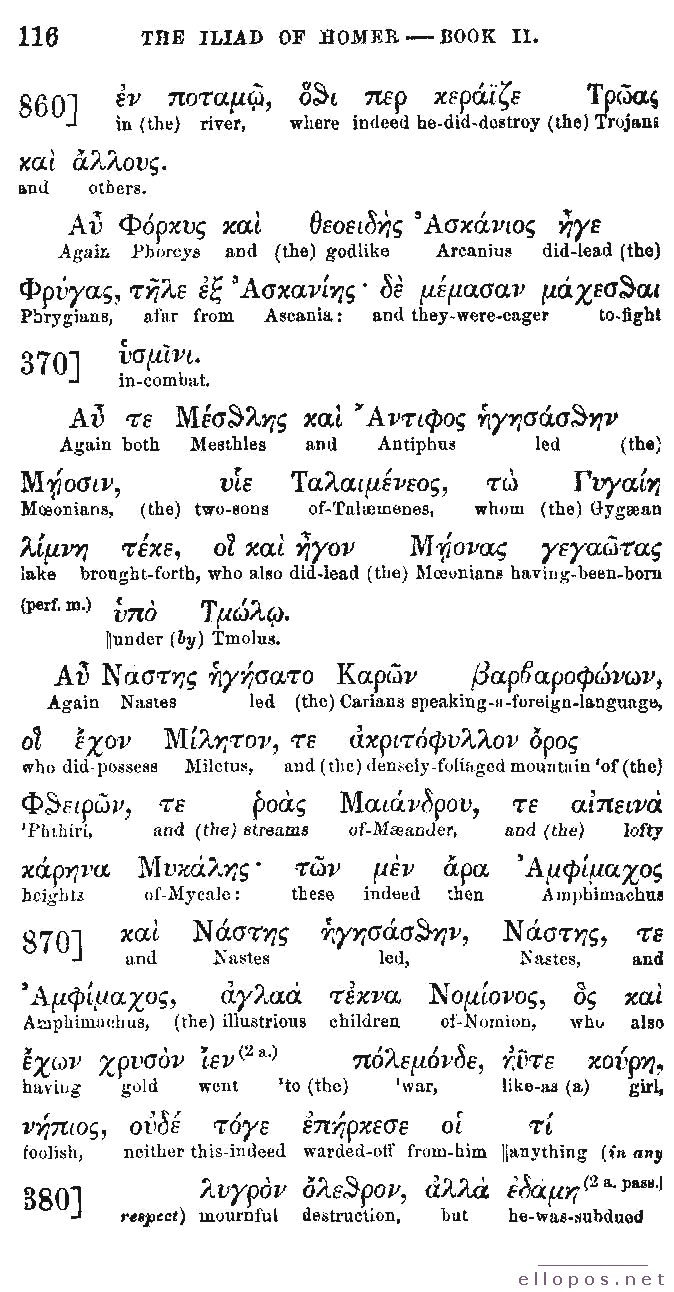 116 THE ILIAD OF HOMER — BOOK II.
860] ἐν ποταμῷ, ὅθι περ κεράϊζε Τρῶας
in (the) river, where indeed he-did-destroy (the) Trojans
καὶ ἄλλους.
and others.
Αὖ Φόρκυς καὶ θεοειδὴς Ἀσκάνιος ἦγε
Again Phorcys and (the) godlike Arcanius did-lead (the)
Φρύγας, τῆλε ἐξ Ἀσκανίης· δὲ μέμασαν μάχεσθαι
Phrygians, afar from Ascania: and they-were-eager to-fight
370] ὑσμῖνι.
in-combat.
Αὖ τε Μέσθλης καὶ Ἄντιφος ἡγησάσθην
Again both Mesthles and Antiphus led (the)
Μῄοσιν, υἷε Ταλαιμένεος, τὼ Γυγαίη
Mœonians, (the) two-sons of-Talæmenes, whom (the) Gygæan
λίμνη τέκε, οἳ καὶ ἦγον Μῄονας γεγαῶτας
lake brought-forth, who also did-lead (the) Mœonians having-been-born
(perf. m.) ὑπὸ Τμώλῳ.
||under (by) Tmolus.
Αὖ Νάστης ἡγήσατο Καρῶν βαρβαροφώνων,
Again Nastes led (the) Carians speaking-a-foreign-language,
οἳ ἔχον Μίλητον, τε ἀκριτόφυλλον ὄρος
who did-possess Miletus, and (the) densely-foliaged mountain 'of (the)
Φθειρῶν, τε ῥοὰς Μαιάνδρου, τε αἰπεινὰ
'Phthiri, and (the) streams of-Mæander, and (the) lofty
κάρηνα Μυκάλης· τῶν μὲν ἄρα Ἀμφίμαχος
heights of-Mycale: these indeed then Amphimachus
870] καὶ Νάστης ἡγησάσθην, Νάστης, τε
and Nastes led, Nastes, and
Ἀμφίμαχος, ἀγλαὰ τέκνα Νομίονος, ὃς καὶ
Amphimachus, (the) illustrious children of-Nomion, who also
ἔχων χρυσὸν ἴεν (2 a.) πόλεμόνδε, ἠΰτε κούρη,
having gold went 'to (the) 'war, like-as (a) girl,
νήπιος, οὐδέ τόγε ἐπήρκεσε οἱ τί
foolish, neither this-indeed warded-off from-him ||anything (in any
380] λυγρὸν ὄλεθρον, ἀλλὰ ἐδάμη (2 a. pass.)
respect) mournful destruction, but he-was-subdued
ellopos.net